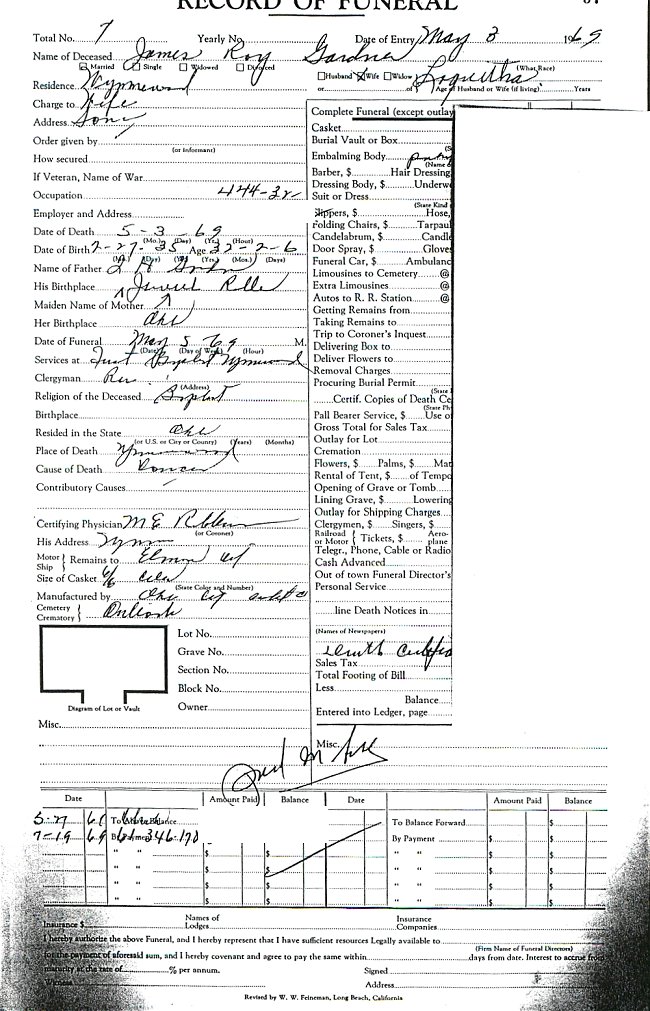 RECORD OF FUNERAL
Total No. 7 Yearly No. Date of Entry May 3 1969
Name of Deceased James Roy Gardner
Married Single Widowed Divorced (What Race)
Residence Wynnewood Husband Wife Widow
or of Age of Husband or Wife (if living) Years
Charge to Wife
Address Same
Order given by
(or Informant)
How secured
If Veteran, Name of War
Occupation 444-32-
Employer and Address
Date of Death 5-3-69
(Mo.) (Day) (Yr.) (Hour)
Date of Birth 2-27-35 Age 32-2-6
(Mo.) (Day) (Yr.) (Yrs.) (Mos.) (Days)
Name of Father
His Birthplace
Maiden Name of Mother
Her Birthplace Okl
Date of Funeral May 5 69 M.
(Date) (Day of Week) (Hour)
Services at First Baptist Wynnewood
Clergyman Rev.
(Address)
Religion of the Deceased Baptist
Birthplace
Resided in the State Okl
(or U.S. or City or County) (Years) (Months)
Place of Death Wynnewood
Cause of Death Cancer
Contributory Causes
Certifying Physician M E
(or Coroner)
His Address Wynn
Motor Ship Remains to
Size of Casket 6/6
(State Color and Number)
Manufactured by Okl City
Cemetery Crematory
Lot No.
Grave No.
Section No.
Block No.
Owner
Diagram of Lot or Vault
Misc.
Complete Funeral (except outlay
Casket
Burial Vault or Box
Embalming Body
Barber, $ Hair Dressing
Dressing Body, $ Underw
Suit or Dress
(State Kind
Slippers, $ Hose,
Folding Chairs, $ Tarpau
Candelabrum, $ Candl
Door Spray, $ Glove
Funeral Car, $ Ambulanc
Limousines to Cemetery @
Extra Limousines @
Autos to R. R. Station @
Getting Remains from
Taking Remains to
Trip to Coroner's Inquest
Delivering Box to
Deliver Flowers to
Removal Charges
Procuring Burial Permit
Certif. Copies of Death Ce
Pall Bearer Service, $ Use o
Gross Total for Sales Tax
Outlay for Lot
Cremation
Flowers, $ Palms, $ Mat
Rental of Tent, $ of Tempo
Opening of Grave or Tomb
Lining Grave, $ Lowering
Outlay for Shipping Charges
Clergymen, $ Singers, $
Railroad or Motor Tickets, $ Aero-plane
Telegr., Phone, Cable or Radio
Cash Advanced
Out of town Funeral Director's
Personal Service
line Death Notices in
(Names of Newspapers)
Sales Tax
Total Footing of Bill
Less
Balance
Entered into Ledger, page
Misc.
Date Amount Paid Balance Date Amount Paid Balance
To Balance Forward $
7-19 69 By Payment $
" " $ $ " " $ $
" " $ $ " " $ $
" " $ $ " " $ $
" " $ $ " " $ $
Insurance $ Names of Lodges Insurance Companies
I hereby authorize the above Funeral, and I hereby represent that I have sufficient resources Legally available to
(Firm Name of Funeral Directors)
for the payment of aforesaid sum, and i hereby covenant and agree to pay the same within days from date. Interest to accrue from
maturity at the rate of % per annum. Signed
Witness Address
Revised by W. W. Feineman, Long Beach, California